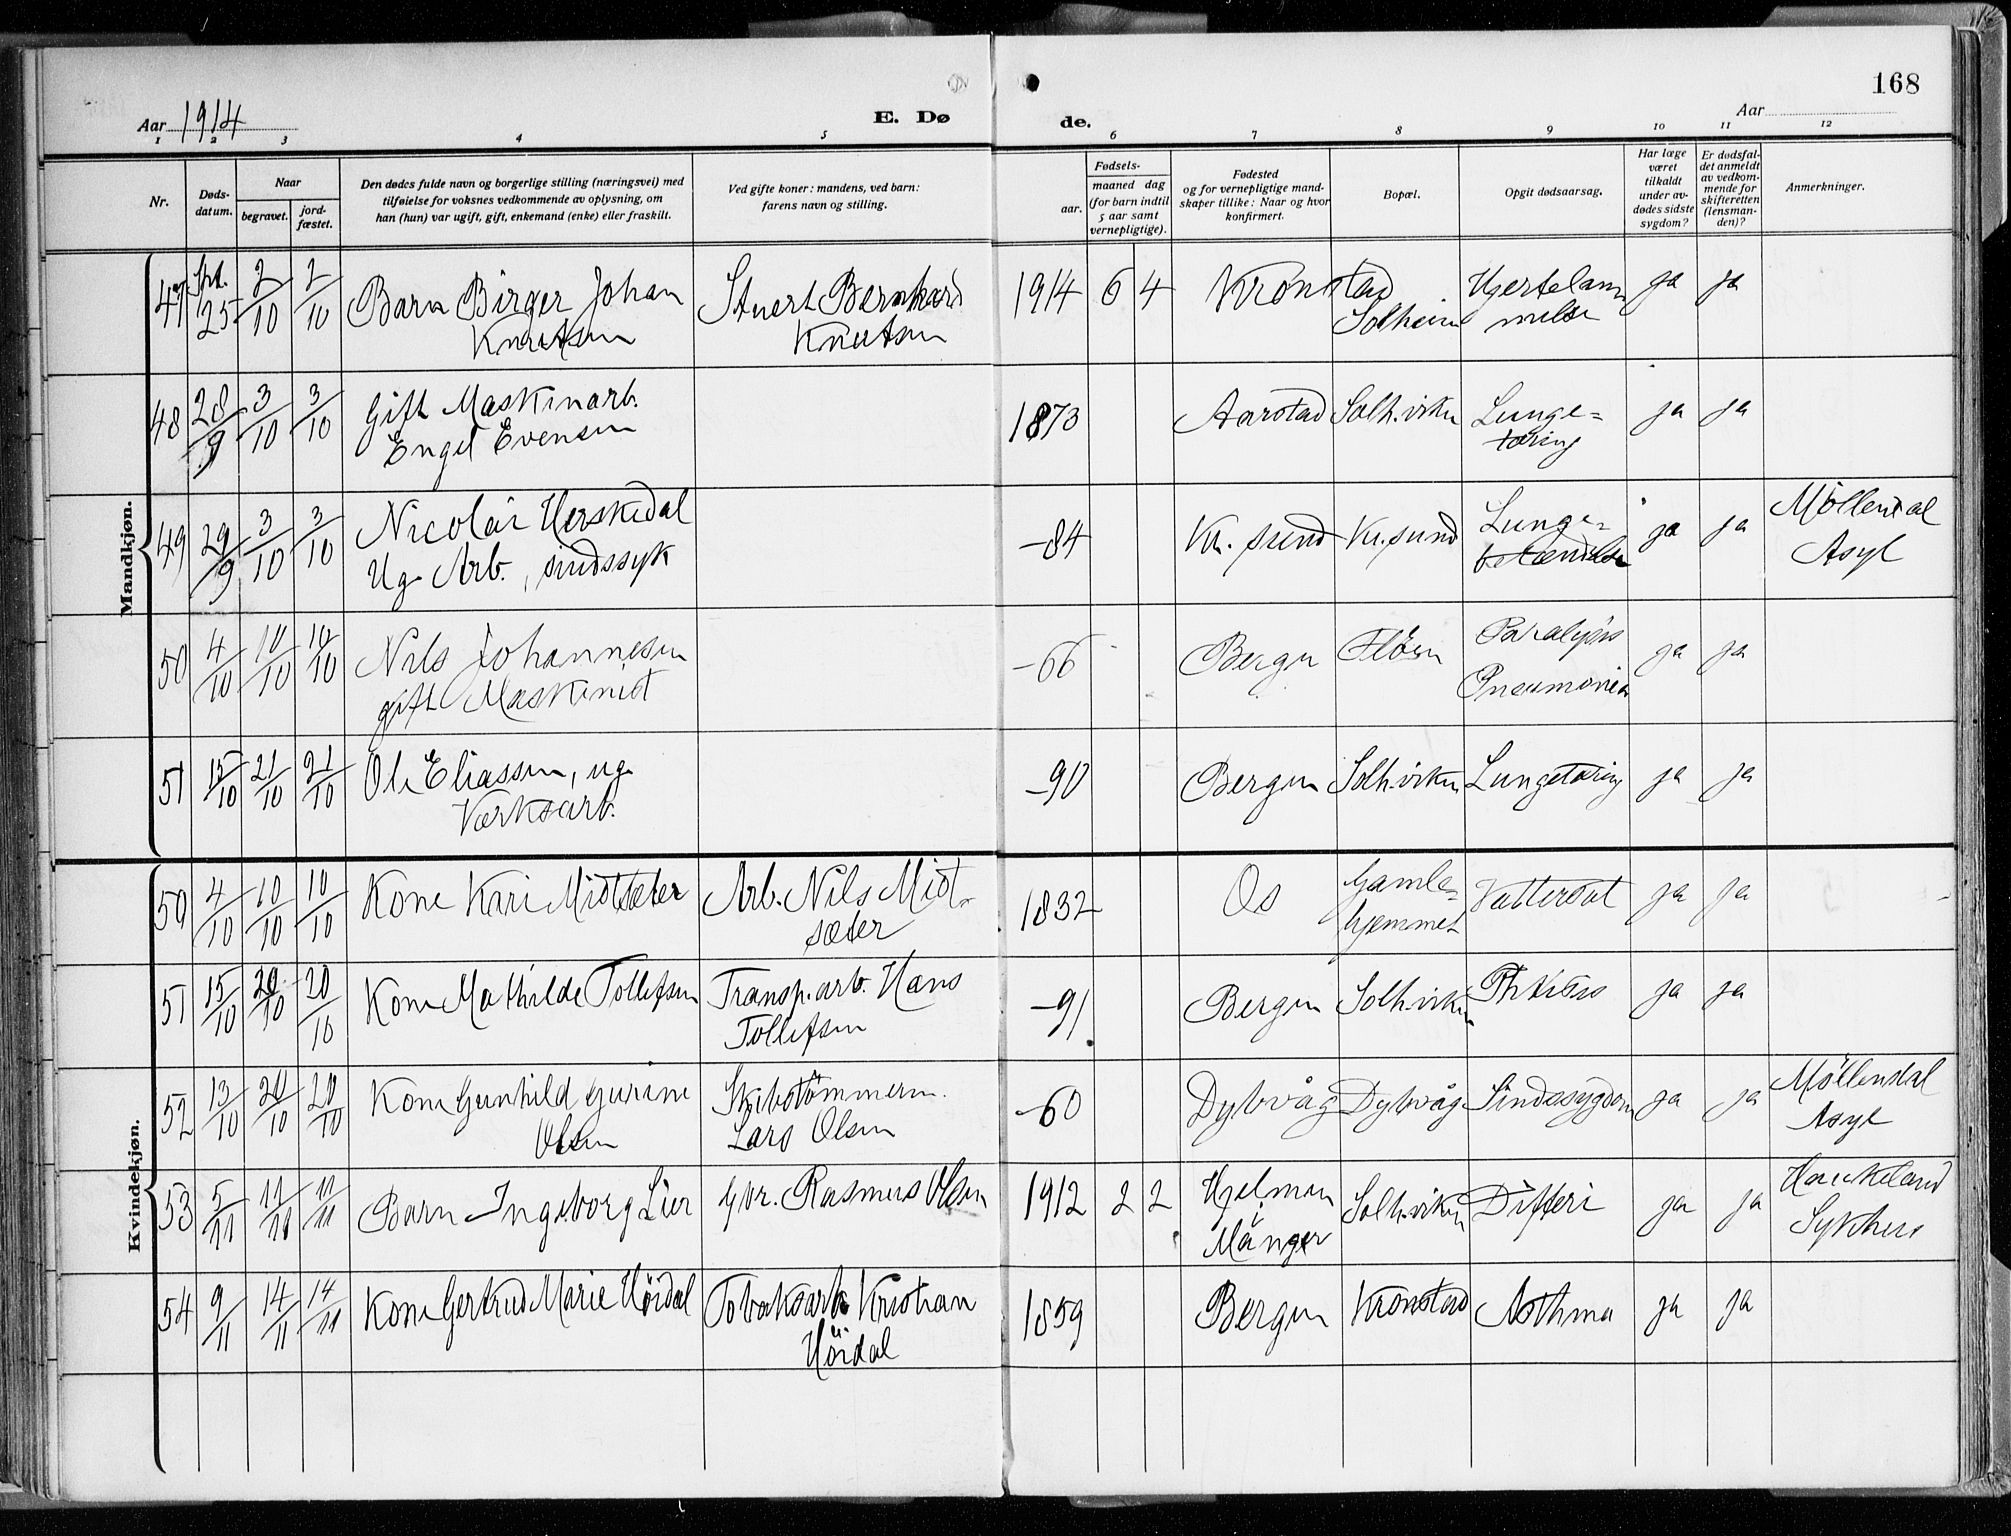 168
Aar 1914
E. Dø
de.
Aar
1 2 3 4 5 6 7 8 9 10 11 12
Nr.
Døds-
datum.
Naar
begravet.
jord-
fæstet.
Den dødes fulde navn og borgerlige stilling (næringsvei) med
tilføielse for voksnes vedkommende av oplysning, om
han (hun) var ugift, gift, enkemand (enke) eller fraskilt.
Ved gifte koner: mandens, ved barn:
farens navn og stilling.
Fødsels-
aar.
maaned dag
(for barn indtil
5 aar samt
vernepligtige).
Fødested
og for vernepligtige mand-
skaper tillike: Naar og hvor
konfirmert.
Bopæl.
Opgit dødsaarsag.
Har læge
været
tilkaldt
under av-
dødes sidste
sygdom?
Er dødsfal-
det anmeldt
av vedkom-
mende for
skifteretten
(lensman-
den)?
Anmerkninger.
Mandkjøn.
47 Spt. 25 2/10 2/10 Barn Birger Johan Bernhard 1914 6 4 Kronstad Hjertelam ja ja
Knutsen Knutsen Solheim melse
48 28/9 3/10 3/10 Gift Maskinarb. 1873 Aarstad Solh.viken Lunge= ja ja
Engel Evensen tæring
49 29/9 3/10 3/10 Nicolai Herskedal -84 Kr. sund Kr. sund Lunge- ja ja Möllendal
Ug. Arb., sindssyk betændelse Asyl
50 4/10 10/10 10/10 Nils Johannesen -66 Bergen Flöen Paralysis ja ja
gift Maskinist Pneumonia
51 15/10 21/10 21/10 Ole Eliassen, ug. -90 Bergen Solh.viken Lungetæring ja ja
Værksarb.
Kvindekjøn.
50 4/10 10/10 10/10 Kone Kari Midtsæter Arb. Nils Midt- 1832 Os Gamle- Vattersot ja ja
sæter hjemmet
51 15/10 20/10 20/10 Kone Mathilde Tollefsen Transp.arb. Hans -91 Bergen Solh.viken Phtisis ja ja
Tollefsen
52 13/10 20/10 20/10 Kone Gunhild Gurine Skibstömmerm. -60 Dybvåg Dybvåg Sindssygdom ja ja Möllendal
Olsen Lars Olsen Asyl
53 5/11 11/11 11/11 Barn Ingeborg Lier Gbr. Rasmus Olsen 1912 2 2 Hjelmen Solh.viken Difteri ja ja Haukeland
Månger Sykehus
54 9/11 14/11 14/11 Kone Gertrud Marie Höidal Tobaksarb. Kristian 1859 Bergen Kronstad Asthma ja ja
Höidal